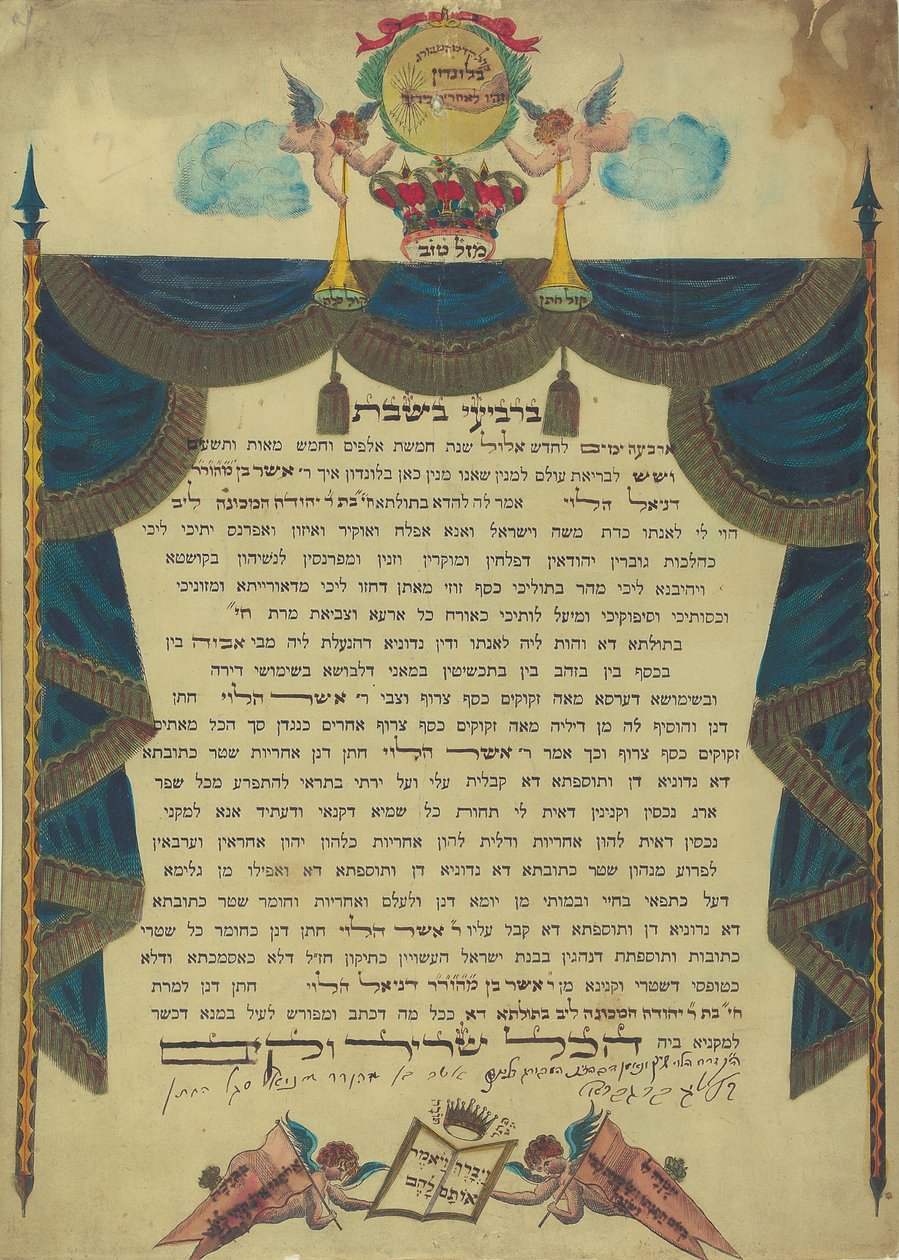 בלונדון
מזל טוב
קול חתן
קול כלה
ברביעי בשבת
ארבעה ימים לחדש אלול שנת חמשת אלפים וחמש מאות ותשעים
ושש לבריאת עולם למנין שאנו מנין כאן בלונדון איך ר׳ אשר בן מהורר
דניאל הלוי אמר לה להדא בתולתא חי״ בת ר׳ יהודה המכונה ליב
הוי לי לאנתו כדת משה וישראל ואנא אפלח ואוקיר ואיזון ואפרנס יתיכי ליכי
כהלכות גוברין יהודאין דפלחין ומוקרין וזנין ומפרנסין לנשיהון בקושטא
ויהיבנא ליכי מהר בתוליכי כסף זוזי מאתן דחזו ליכי מדאורייתא ומזוניכי
וכסותיכי וסיפוקיכי ומיעל לותיכי כאורח כל ארעא וצביאת מרת חי״
בתולתא דא והות ליה לאנתו ודין נדוניא דהנעלת ליה מבי אביה בין
בכסף בין בזהב בין בתכשיטין במאני דלבושא בשימושי דירה
ובשימושא דערסא מאה זקוקים כסף צרוף וצבי ר׳ אשר הלוי חתן
דנן והוסיף לה מן דיליה מאה זקוקים כסף צרוף אחרים כנגדן סך הכל מאתים
זקוקים כסף צרוף וכך אמר ר׳ אשר הלוי חתן דנן אחריות שטר כתובתא
דא נדוניא דן ותוספתא דא קבלית עלי ועל ירתי בתראי להתפרע מכל שפר
ארג נכסין וקנינין דאית לי תחות כל שמיא דקנאי ודעתיד אנא למקני
נכסין דאית להון אחריות ודלית להון אחריות כלהון יהון אחראין וערבאין
לפרוע מנהון שטר כתובתא דא נדוניא דן ותוספתא דא ואפילו מן גלימא
דעל כתפאי בחיי ובמותי מן יומא דנן ולעלם ואחריות וחומר שטר כתובתא
דא נדוניא דן ותוספתא דא קבל עליו ר׳ אשר הלוי חתן דנן כחומר כל שטרי
כתובות ותוספתת דנהגין בבנת ישראל העשויין כתיקון חז״ל דלא כאסמכתא ודלא
כטופסי דשטרי וקנינא מן ר׳ אשר בן מהורר דניאל הלוי חתן דנן למרת
חי״ בת ר׳ יהודה המכונה ליב בתולתא דא ככל מה דכתב ומפורש לעיל במנא דכשר
למקניא ביה הכל שריר וקים
אשר בן מהורר דניאל סגל החתן
ויברך ויאמר
אותם להם